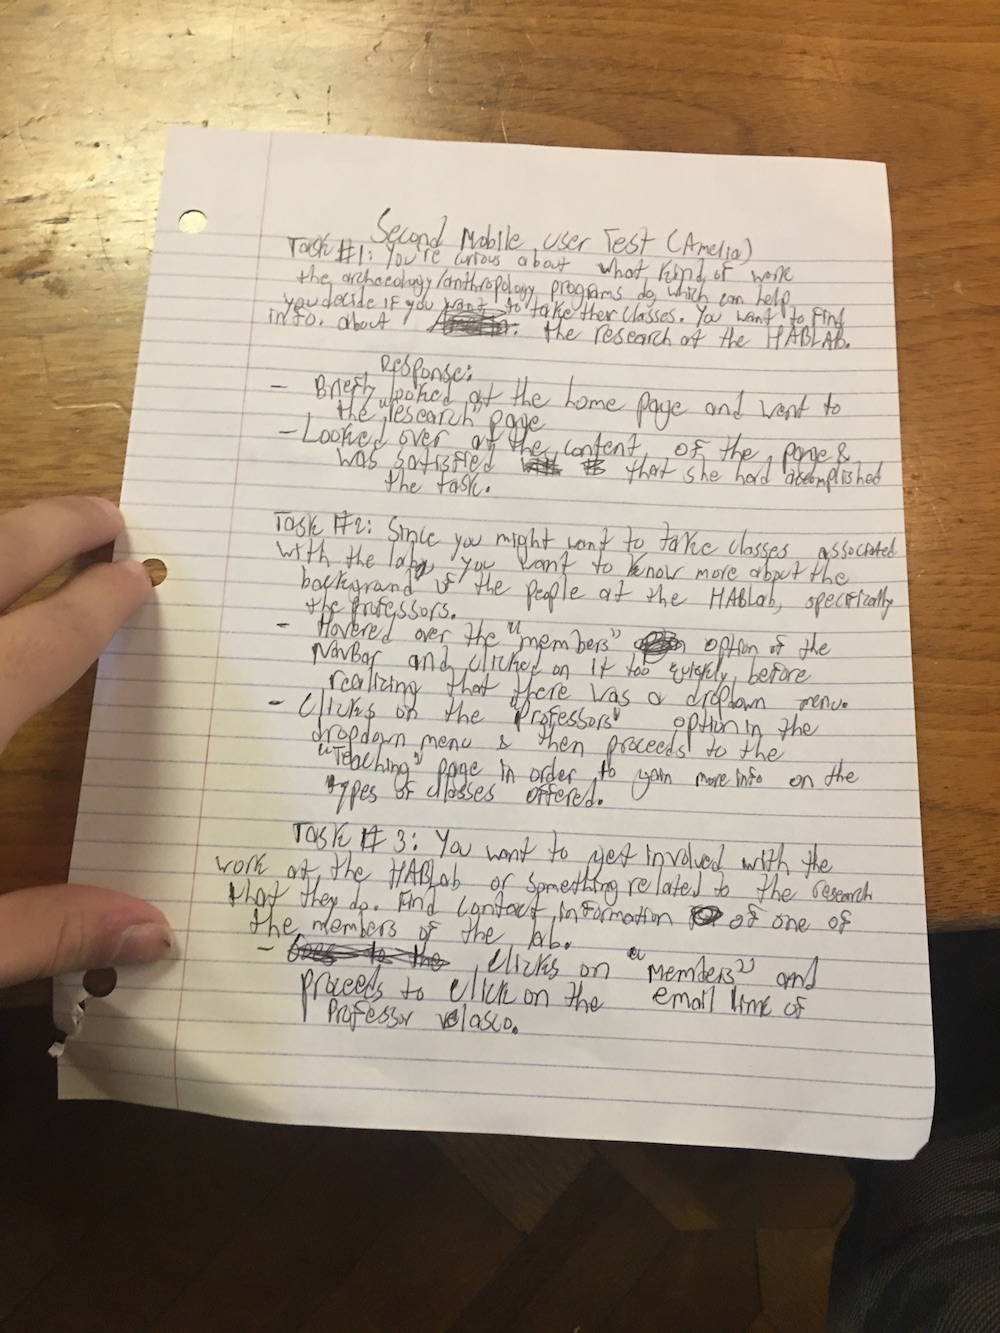 Second Mobile User Test (Amelia)
Task #1: You're curious about what kind of work
the archaeology/anthropology programs do, which can help
you decide if you want to take their classes. You want to find
info. about the research at the HABLAB.
Response:
- Briefly looked at the home page and went to
the "research" page
- Looked over at the content of the page &
was satisfied that she had accomplished
the task.
Task #2: Since you might want to take classes associated
with the lab, you want to know more about the
background of the people at the HABLab, specifically
the professors.
- Hovered over the "members" option of the
NavBar and clicked on it too quickly, before
realizing that there was a dropdown menu.
- Clicks on the "Professors" option in the
dropdown menu & then proceeds to the
"Teaching" page in order to gain more info on the
types of classes offered.
Task # 3: You want to get involved with the
work at the HABLab or something related to the research
that they do. Find contact information of one of
the members of the lab.
- clicks on "Members" and
proceeds to click on the email link of
Professor Velasco.